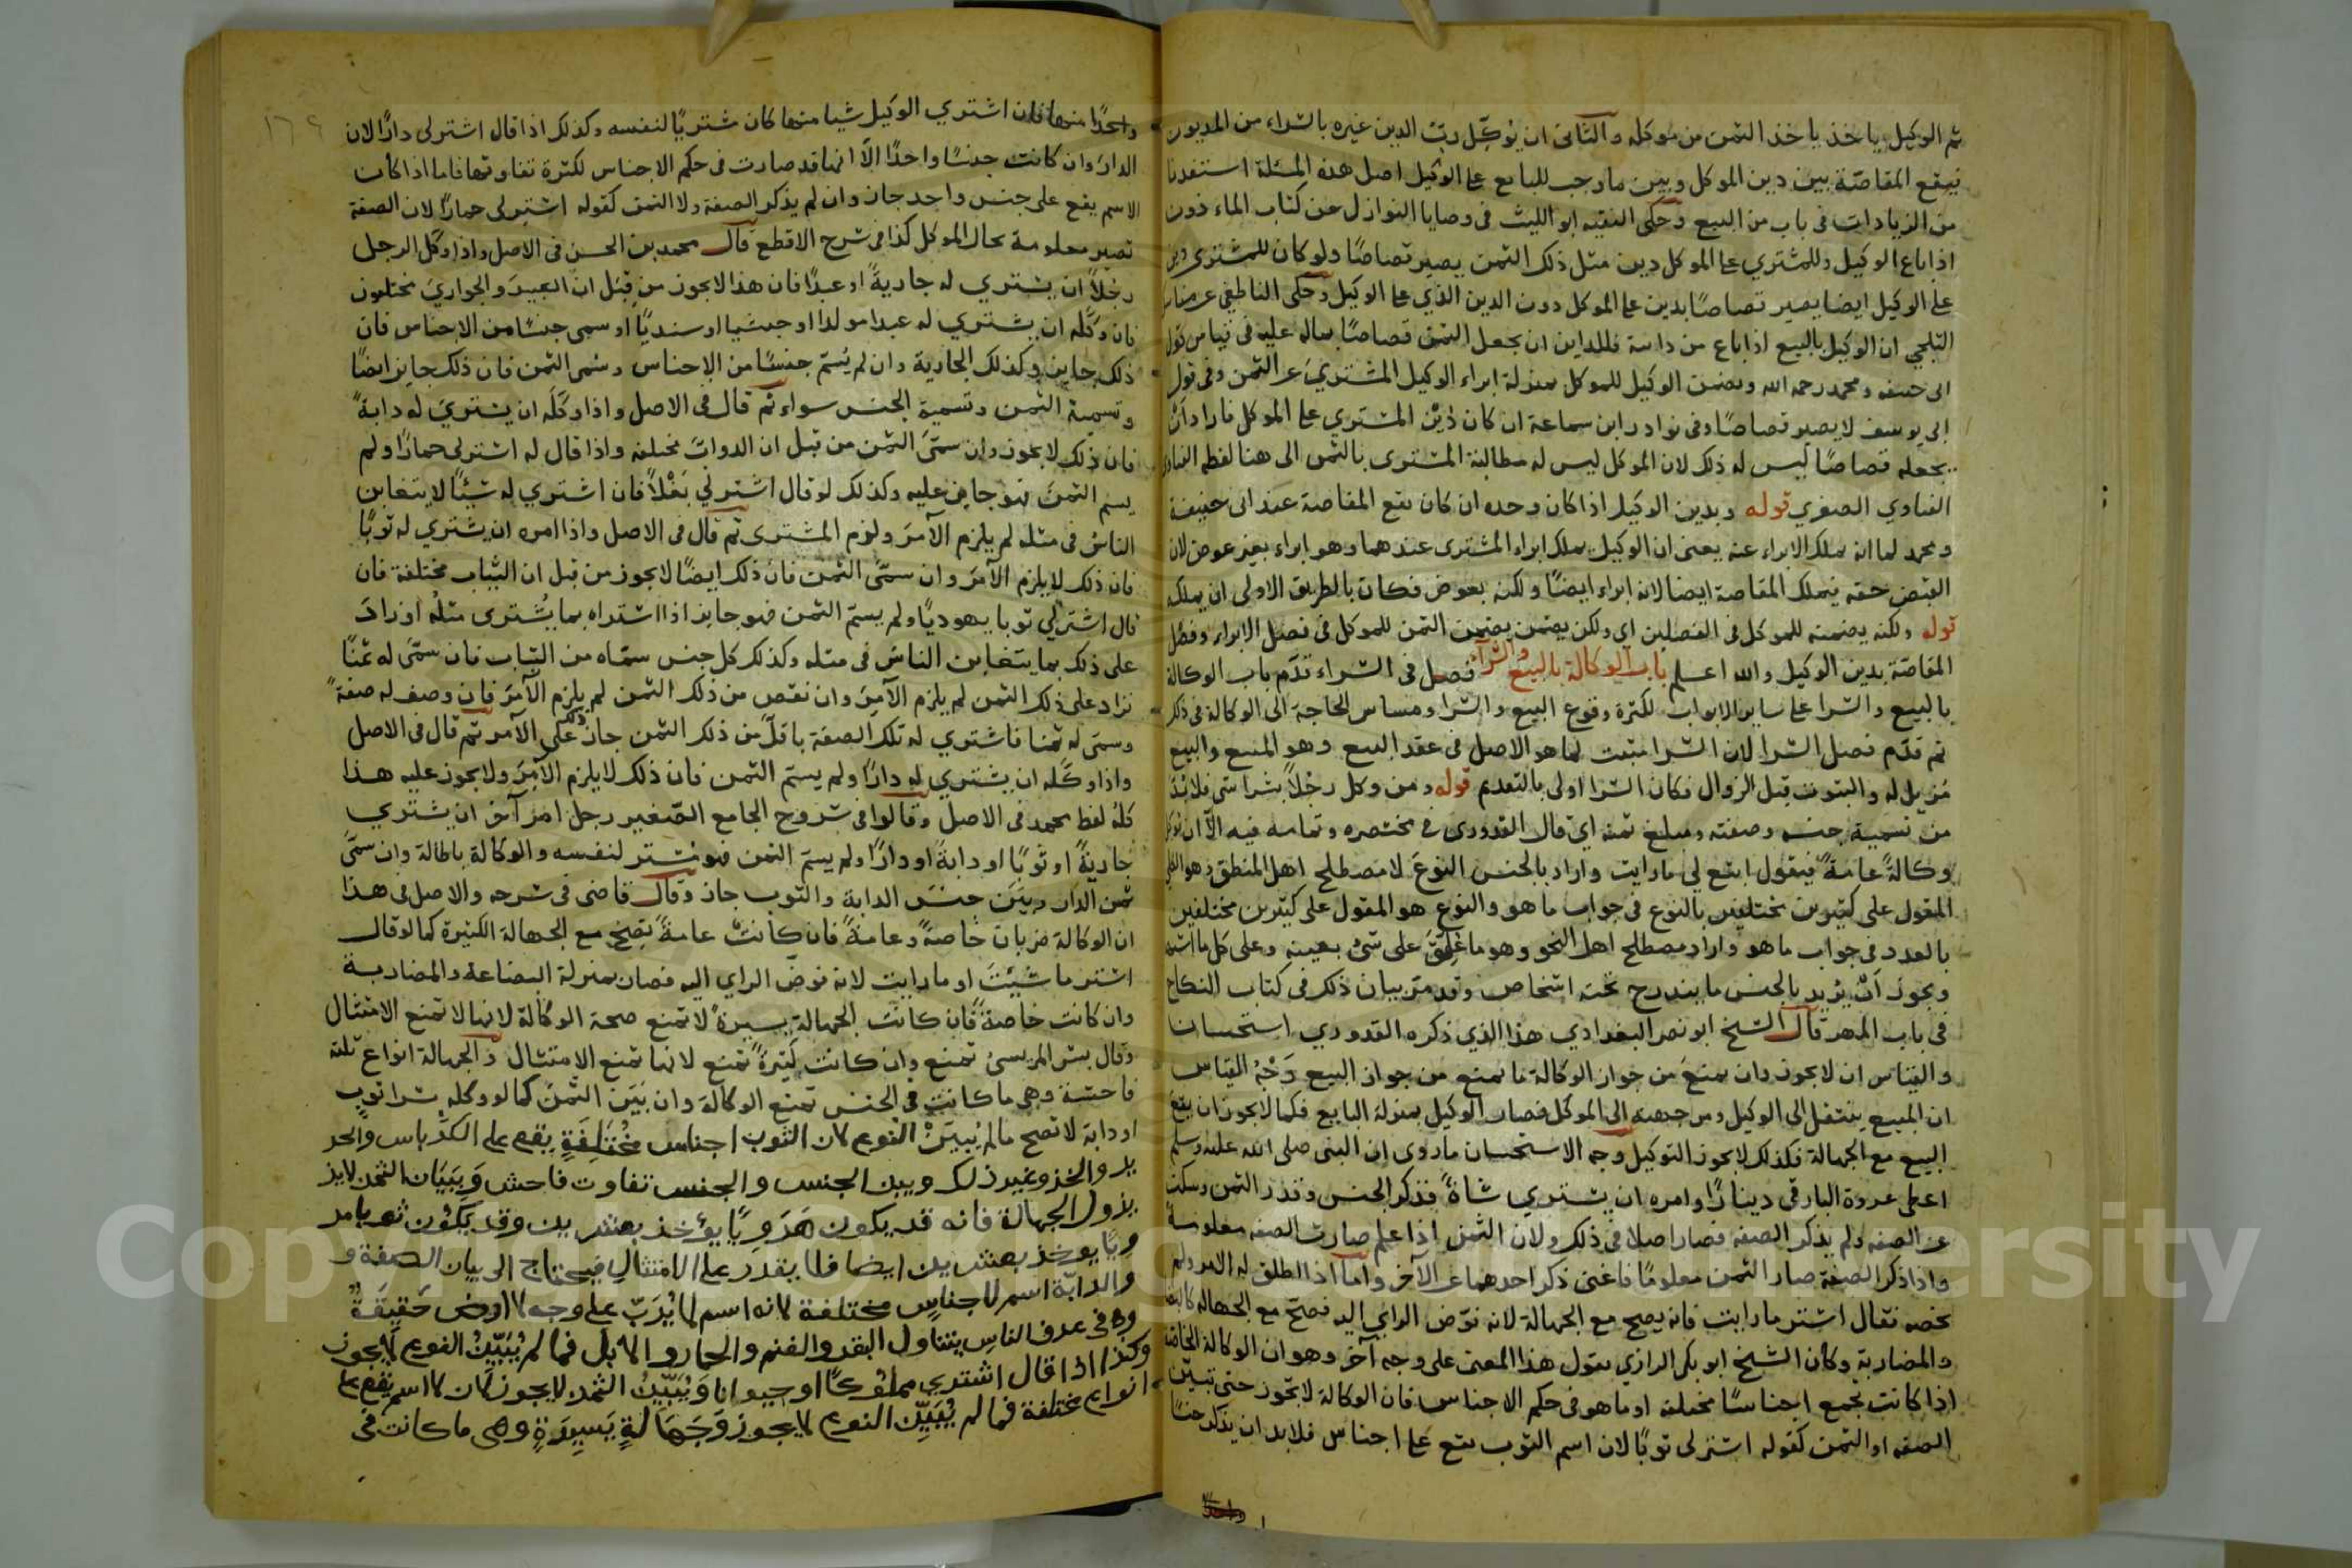 ثم الوكيل ياخذ ياخذ الثمن من موكله والثانى ان يوكّل ربّ الدين غيره بالشراء من المديون
فيقع المقاصّة بين دين الموكل وبين ما وجب للبايع على الوكيل اصل هذه المسئلة استفدنا
من الزيادات فى باب من البيع وحكى الفقيه ابو الليث فى وصايا النوازل عن كتاب الماء ذون
اذا باع الوكيل وللمشتري على الموكل دين مثل ذلك الثمن يصير قصاصًا ولو كان للمشترى دين
على الوكيل ايضا يصير قصاصًا بدين على الموكل دون الدين الذي على الوكيل وحكى الناطفى عن
الثلجي ان الوكيل بالبيع اذا باع من داينه فللداين ان يجعل الثمن قصاصًا بماله عليه فى قياس قول
ابى حنيفه ومحمد رحمه الله ويضمن الوكيل للموكل بمنزلة ابراء الوكيل المشتريَ عن الثمن وفى قول
ابى يوسف لا يصير قصاصًا وفى نوادر ابن سماعة ان كان دَيْن المشتري على الموكل فاراد اَنْ
يجعله قصاصًا ليس له ذلك لان الموكل ليس له مطالبة المشترى بالثمن الى هنا لفظ الفتاوى
الفتاوي الصغري قوله وبدين الوكيل اذا كان وحده ان كان تقع المقاصة عند ابى حنيفة
ومحمد لما انه يملك الابراء عنه يعنى ان الوكيل يملك ابراء المشترى عندهما وهو ابراء بغير عوض لان
القبض حقه فيملك المقاصة ايضا لانه ابراء ايضًا ولكنه بعوض فكان بالطريق الاولى ان يملك
قوله ولكنه يضمنه للموكل فى الفصلين اي ولكن يضمن يضمن الثمن للموكل فى فصل الابراء وفصل
المقاصّة بدين الوكيل والله اعلم باب الوكالة بالبيع والشراء فصل فى الشراء قدّم باب الوكالة
بالبيع والشرا على ساير الابواب لكثرة وقوع البيع والشرا ومساس الحاجة الى الوكالة فى ذلك
ثم قدّم فصل الشرا لان الشرا مثبت لما هو الاصل فى عقد البيع وهو المبيع والبيع
مُزيل له والثبوت قبل الزوال فكان الشرا اولى بالتقديم قوله ومن وكل رجُلاً بشراشى فلا بُدّ
من تسمية جنسه وصفته ومبلغ ثمنه اي قال القدورى فى مختصره وتمامه فيه الاّ ان يوكّل
وكالةً عامّةً فيقول ابتع لى ما رايت واراد بالجنس النوعَ لا مصطلح اهل المنطق وهو
المقول على كثيرين مختلفين بالنوع فى جواب ما هو والنوع هو المقول على كثيرين مختلفين
بالعدد فى جواب ما هو واراد مصطلح اهل النحو وهو ما عُلِّقَ على شئ بعينه وعلى كل ما اشبهه
ويجوز اَنْ يريد بالجنس ما يندرج تحته اشخاص وقد مرّ بيان ذلك فى كتاب النكاح
فى باب المهر قال الشيخ ابو نصر البغدادي هذا الذي ذكره القدوري استحسانا
والقياس ان لا يجوز وان يمنع من جواز الوكالة ما يمنع من جواز البيع وَجْهُ القياس
ان المبيع ينتقل الى الوكيل ومن جهته الى الموكل فصار الوكيل بمنزلة البايع فكما لا يجوز ان يقع
البيع مع الجهالة فكذلك لا يجوز التوكيل وجه الاستحسان ما روى ان النبى صلى الله عليه وسلم
اعطى عروة البارقى دينارًا وامره ان يشتري شاةً فذكر الجنس وقدر الثمن وسكت
عن الصفه ولم يذكر الصفه فصار اصلا فى ذلك ولان الثمن اذا علم صارت الصفه معلومة
واذا ذكر الصفة صار الثمن معلومًا فاغنى ذكر احدهما عن الآخر واما اذا اطلق له الامر ولم
يخصه فقال اشتر ما رايت فانه يصح مع الجهالة لانه فوّض الراي اليه فصحّ مع الجهاله
والمضاربة وكان الشيخ ابو بكر الرازي يقول هذا المعنى على وجه آخر وهو ان الوكالة الخاصة
اذا كانت تجمع اجناسًا مختلفه او ما هو فى حكم الاجناس فان الوكالة لا تجوز حتى تبيّن
الصفه او الثمن كقوله اشتر لى ثوبًا لان اسم الثوب يقع على اجناس فلا بد ان يذكر جنسًا
واحدًا
١٦٩
واحدًا منها فان اشتري الوكيل شيا منها كان مشتريًا لنفسه وكذلك اذا قال اشتر لى دارًا لان
الدارَ وان كانت جنسًا واحدًا الاّ انها قد صارت فى حكم الاجناس لكثرة تفاوتها فاما اذا كان
الاسم يقع على جنس واحد جاز وان لم يذكر الصفة ولا الثمن كقوله اشتر لى حمارًا لان الصفة
تصير معلومة بحال الموكل كذا فى شرح الاقطع قال محمد بن الحسن فى الاصل واذا وكّل الرجل
رجُلاً ان يشتري له جاريةً او عبدًا فان هذا لا يجوز من قِبَل ان العبيدَ والجواريَ مختلفون
فان وكّله ان يشتري له عبدا مولدا او حبشيا او سنديًّا او سمى جنسًا من الاجناس فان
ذلك جايز وكذلك الجارية وان لم يُسَمّ جنسًا من الاجناس وسَمى الثمن فان ذلك جايز ايضًا
وتسميةُ الثمن وتسمية الجنس سواء ثم قال فى الاصل واذا وكّلَه ان يشتريَ له دابةً
فان ذلك لا يجوز وان سمّىَ الثمن من قبل ان الدوابّ مختلفه واذا قال له اشتر لى حمارًا ولم
يسم الثمنَ فهو جايز عليه وكذلك لو قال اشتر لي بَغْلاً فان اشتري له شَيئًا لا يتغابن
الناسُ فى مثله لم يلزم الآمرَ ولزم المشترى ثم قال فى الاصل واذا امره ان يشتري له ثوبًا
فان ذلك لا يلزم الآمرَ وان سمّىَ الثمن فان ذلك ايضًا لا يجوز من قبل ان الثياب مختلفة فان
قال اشتر لي ثوبا يهوديًا ولم يسمّ الثمن فهو جايز اذا اشتراه بما يُشترى مثلُه او زادَ
على ذلك بما يتغابن الناسُ فى مثله وكذلك كل جنس سمّاه من الثياب فان سمّىَ له ثمنًا
فزاد على ذلك الثمن لم يلزم الآمِرَ وان نقص من ذلك الثمن لم يلزم الآمرَ فان وصف له صفةً
وسمى له ثمنا فاشتري له تلك الصفة باقلّ من ذلك الثمن جاز ذلك على الآمر ثم قال فى الاصل
واذا وكّله ان يشتري له دارًا ولم يسمّ الثمن فان ذلك لا يلزم الآمِرَ ولا يجوز عليه هذا
كلُّه لفظ محمد فى الاصل وقالوا فى شروح الجامع الصّغير رجل امر آخر ان يشتري
جاريةً او ثوبًا او دابةً او دارًا ولم يسمّ الثمن فهو مشتر لنفسه والوكالة باطالة وان سمّىَ
ثمن الدار وبيّن جنسَ الدابة والثوب جاز وقال قاضى فى شرحه والاصل فى هذا
ان الوكالة ضربان خاصةً وعامةً فان كانتْ عامةً تصح مع الجهالة الكثيرة كما لو قال
اشتر ما شيئتَ او ما رايت لانه فوضّ الراي اليه فصار بمنزلة البضاعة والمضاربة
وان كانت خاصةً فان كانتَ الجهالة يسيرةً لا تمنع صحة الوكالة لانها لا تمنع الامتثال
وقال بشر المريسىُ تمنع وان كانت كثيرةً تمنع لانها تمنع الامتثال والجهالة انواع ثلثة
فاحشة وهى ما كانت فى الجنس تمنع الوكالة وان بَيّن الثمنَ كما لو وكله بشرا ثوبٍ
او دابة لا تصح مالم يُبيّنْ النوع لان الثوب اجناس مُخْتَلِفَةٍ يقع على الكرّباس والحر
ير والخز وغير ذلك وبين الجنس والجنس تفاوت فاحش وَبِبَيَان الثمن لايز
يزول الجهالة فانه قد يكون هَرَوِيًّا يؤخذ بعشرين وقد يَكون ثوبا مر
ويًّا يوخذ بعشرين ايضا فلا يقدر على الامتثالِ فيحتاج الى بيان الصفة و
والدابّة اسم لاجناسٍ مختلفة لانه اسم لما يَدبّ على وجه الارض حَقيقَةً
وفى عرف الناس يتناول البقر والغنم والحمار والابل فما لم يُبَيِّنُ النوع لَايجوز
وكذا اذا قال اشترى مملوكًا او حيوانا وَيُبَيِّنُ الثمن لايجوز لان الاسم يقع على
انواع مختلفة فما لم يُبَيِّن النوع لايجوز وَجَهَالَةٍ يَسِيرَةٍ وهى ما كانت فى